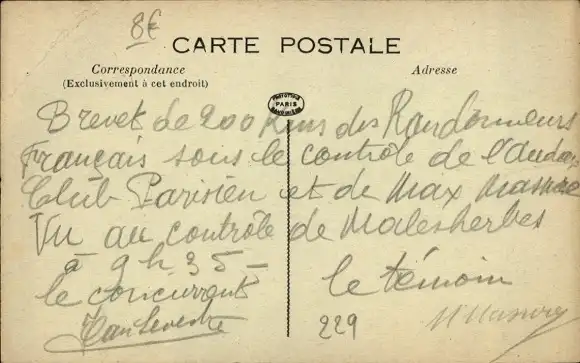 8€
CARTE POSTALE
Correspondance
(Exclusivement à cet endroit)
Adresse
PARIS
Brevet de 200 Kms des Randonneurs
Français sous le contrôle de l'Audax
Club Parisien et de Max
Vu au contrôle de Malesherbes
à 9 h 35 -
le concurrent
le témoin
229